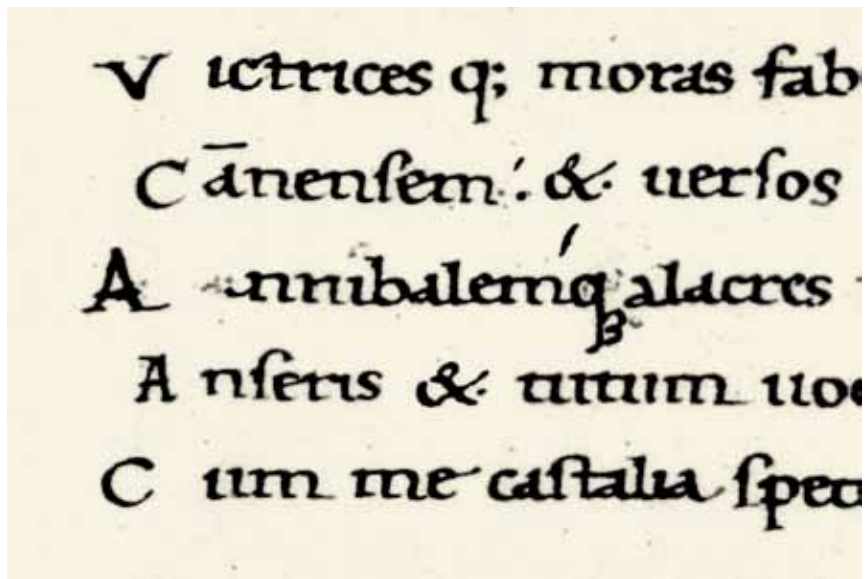 V ictrices q; moras fab
C ānenſem : & uerſos
A nnibalemq́ꝫ alacres
A nſeris & tutum uoc
C um me caſtalia ſpec